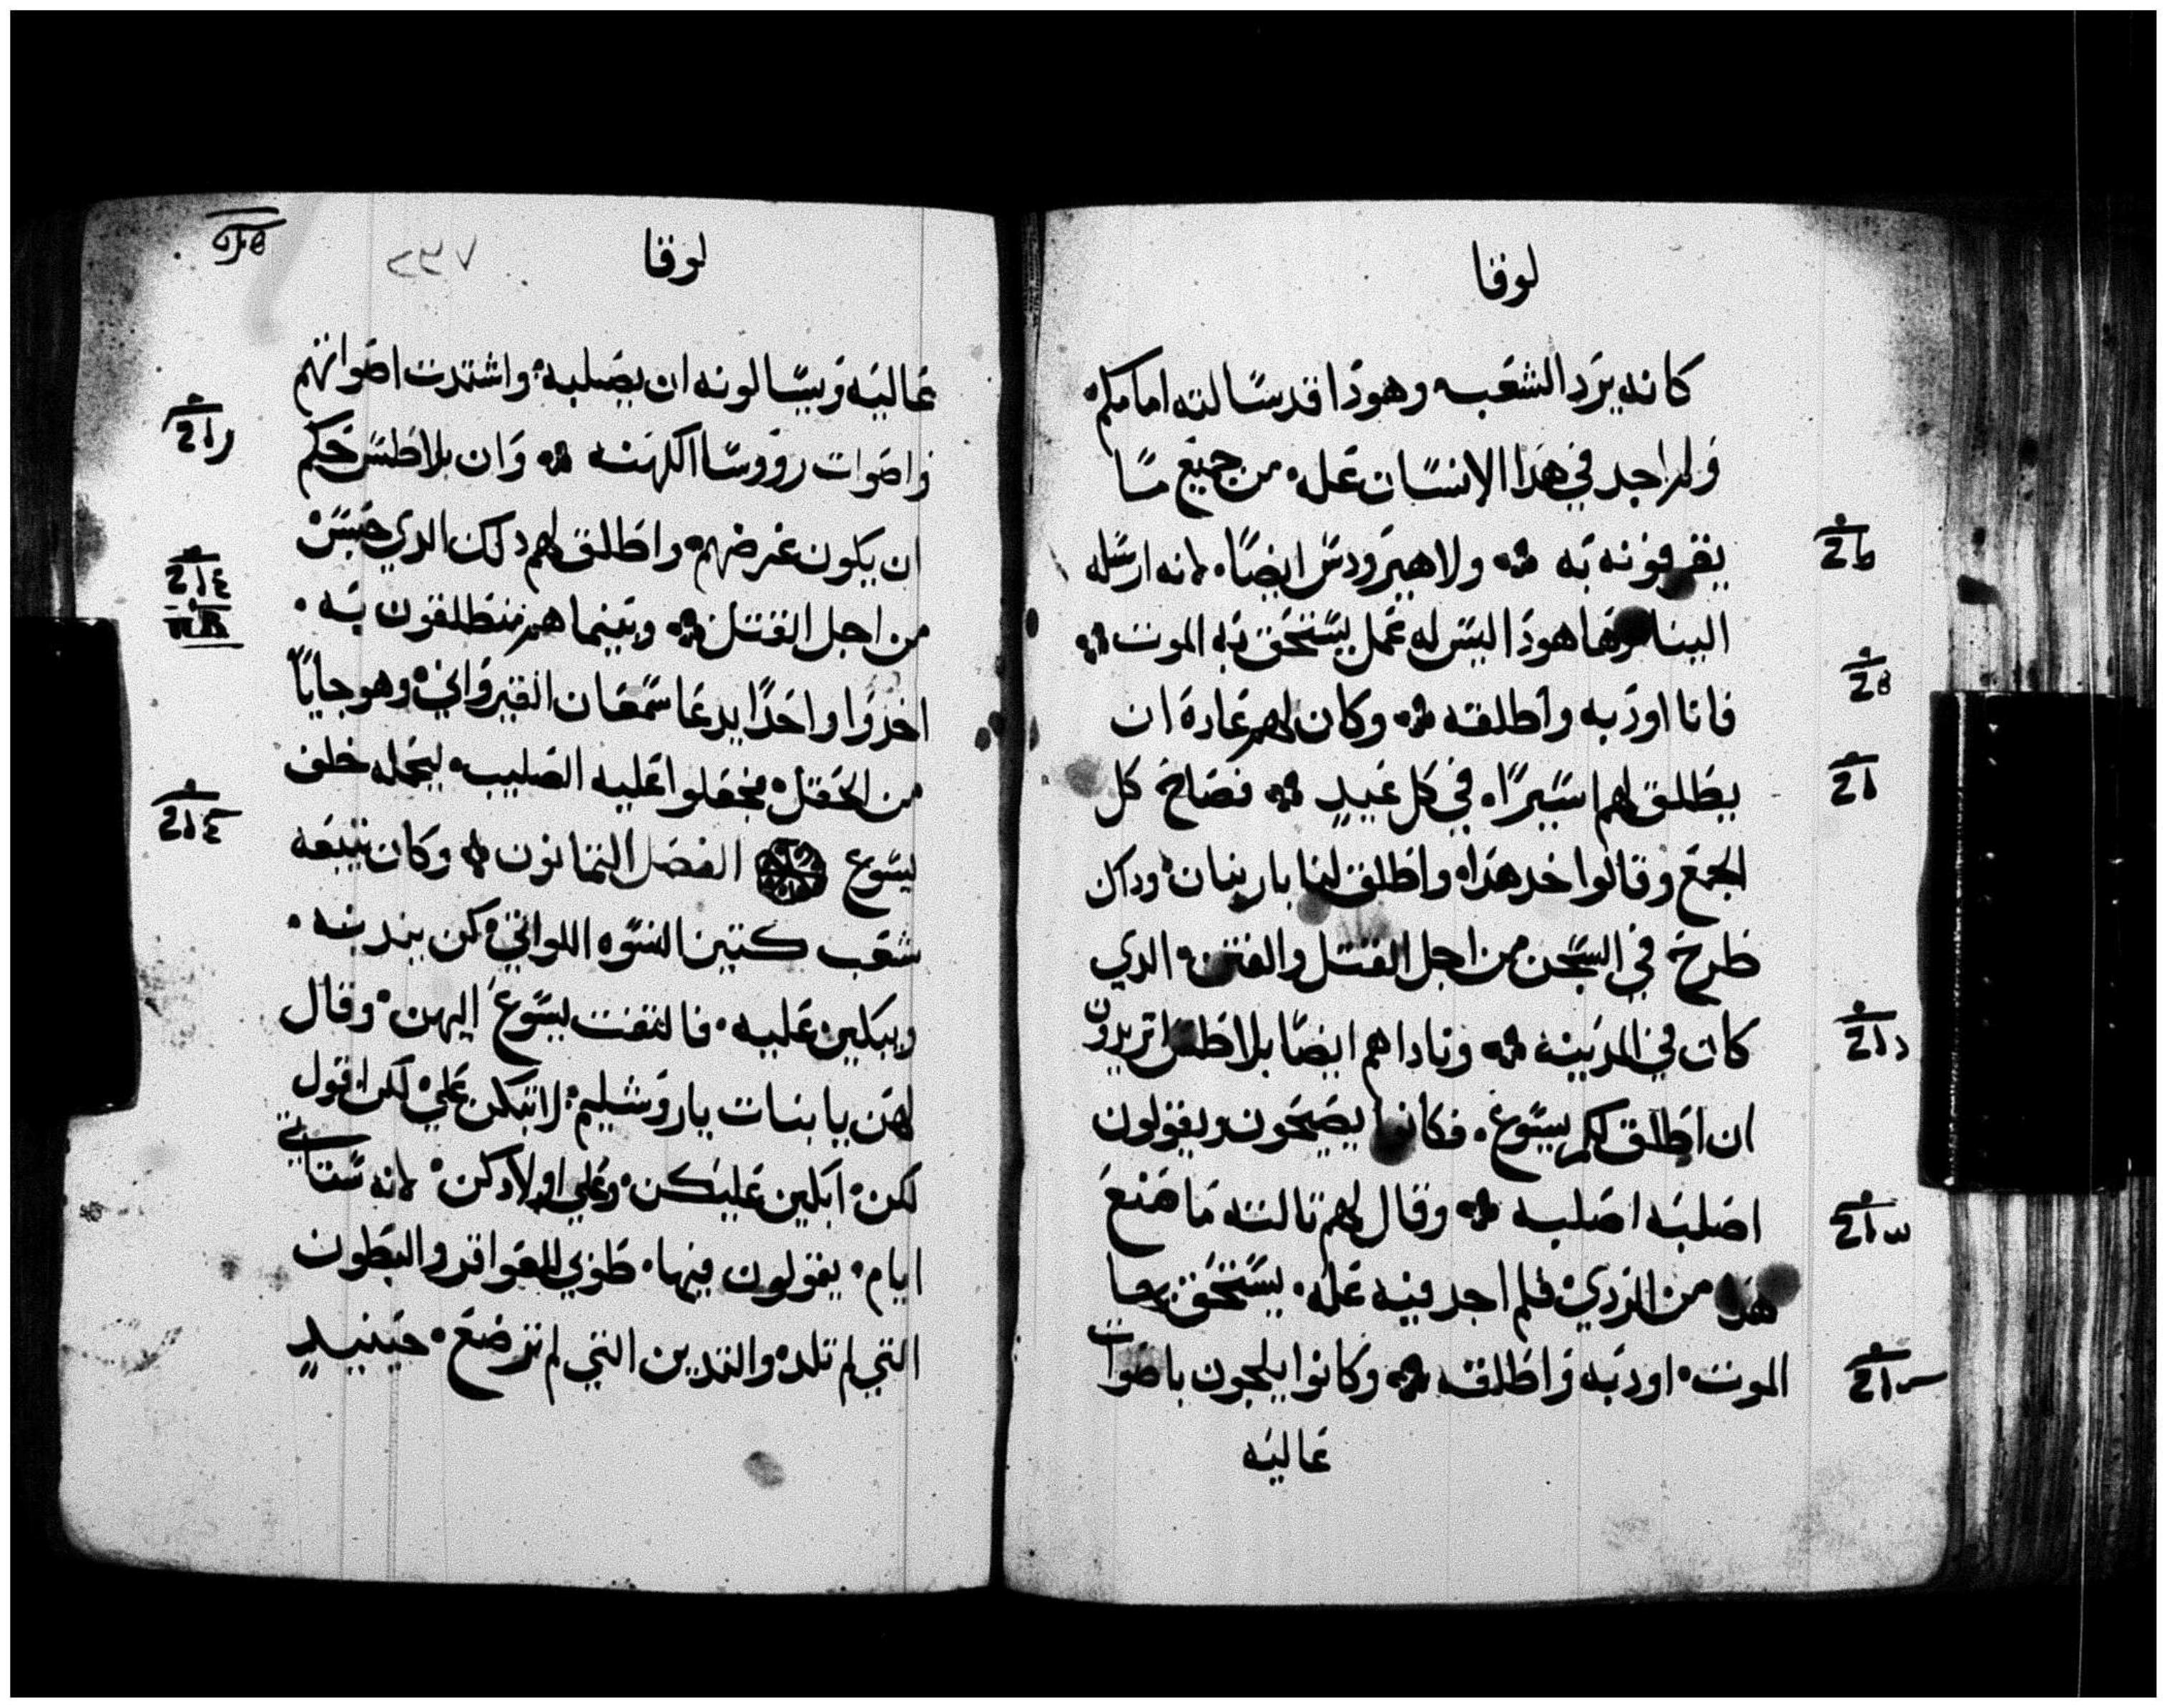 لوقا
كانه يرد الشعب وهودا قد سالته امامكم
ولم اجد في هذا الانسان عله من جميع مسا
يقرفونه به ولا هيرودس ايضا لانه ارسله
الينا وها هودا ليس له عمل يستحق به الموت
فانا اودبه واطلقه وكان لهم عاده ان
يطلق لهم اسيرا في كل عيد فصاح كل
الجمع وقالوا خد هدا واطلق لنا باربنان وداك
طرح في السجن من اجل القتل والفتن الدي
كان في المدينه وناداهم ايضا بلاطس اتريدون
ان اطلق لكم يسوع فكانوا يصيحون ويقولون
اصلبه اصلبه وقال لهم تالته ما صنع
هدا من الردي فلم اجد فيه عله يستحق بها
الموت اودبه واطلقه وكانوا يلجون باصوات
عاليه
لوقا
عاليه ويسالونه ان يصلبه واشتدت اصواتهم
واصوات رووسا الكهنه وان بلاطس حكم
ان يكون غرضهم واطلق لهم دلك الدي حبس
من اجل القتل وبينما هم منطلقون به
اخدوا واحدا يدعا سمعان القيرواني وهو جايا
من الحقل فجعلوا عليه الصليب ليحمله خلف
يسوع الفصل التمانون وكان يتبعه
شعب كتير النسوه اللواتي كن يندبنه
ويبكين عليه فالتفت يسوع اليهن وقال
لهن يا بنات ياروشليم لا تبكن علي لكن اقول
لكن ابكين عليكن وعلي اولادكن لانه ستاتي
ايام يقولون فيها طوبي للعواقر والبطون
التي لم تلد والتديين التي لم ترضع حينيد